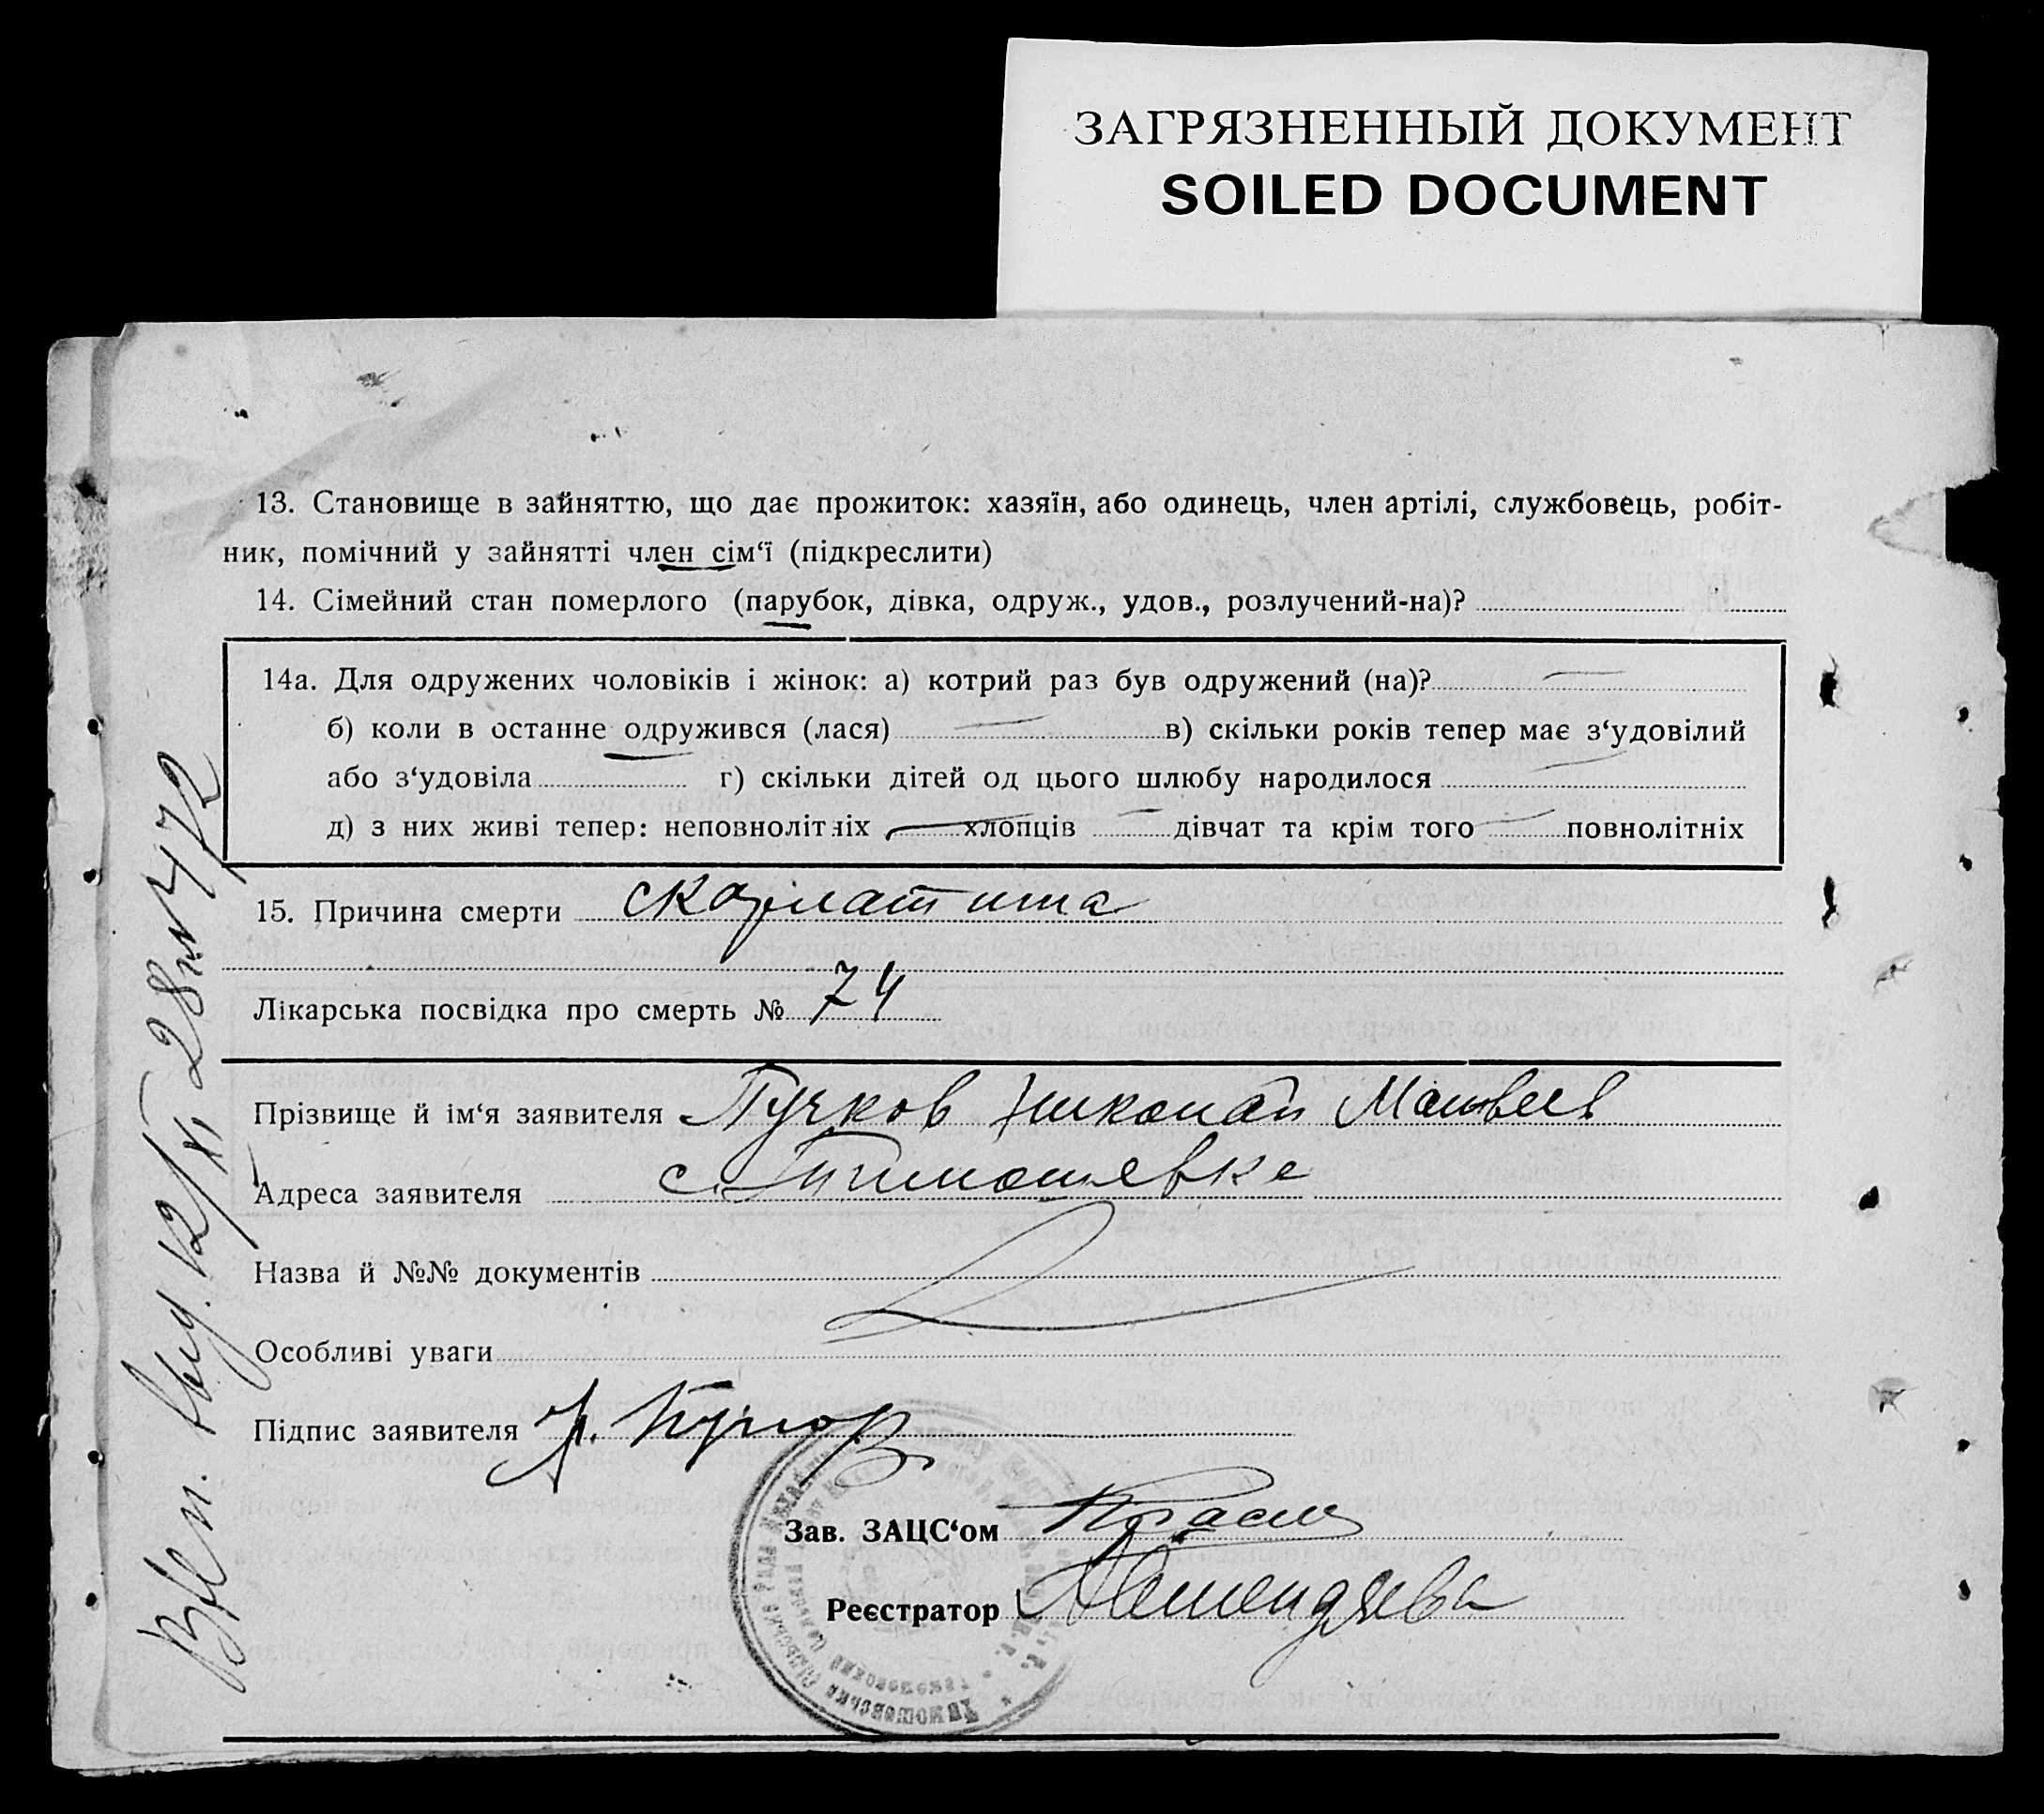 ЗАГРЯЗНЕННЫЙ ДОКУМЕНТ
SOILED DOCUMENT
13. Становище в зайняттю, що дає прожиток: хазяїн, або одинець, член артілі, службовець, робіт-
ник, помічний у зайнятті член сім‘ї (підкреслити)
14. Сімейний стан померлого (парубок, дівка, одруж., удов., розлучений-на)?
14а. Для одружених чоловіків і жінок: а) котрий раз був одружений (на)?
б) коли в останнє одружився (лася) в) скільки років тепер має з‘удовілий
або з‘удовіла г) скільки дітей од цього шлюбу народилося
д) з них живі тепер: неповнолітніх хлопців дівчат та крім того повнолітніх
15. Причина смерти скарлатина
Лікарська посвідка про смерть № 74
Прізвище й ім‘я заявителя Пучков Николай Матвеев
Адреса заявителя с. Тимошевке
Назва й №№ документів
Особливі уваги
Підпис заявителя
Зав. ЗАЦС‘ом
Реєстратор
12/XI 28 № 472